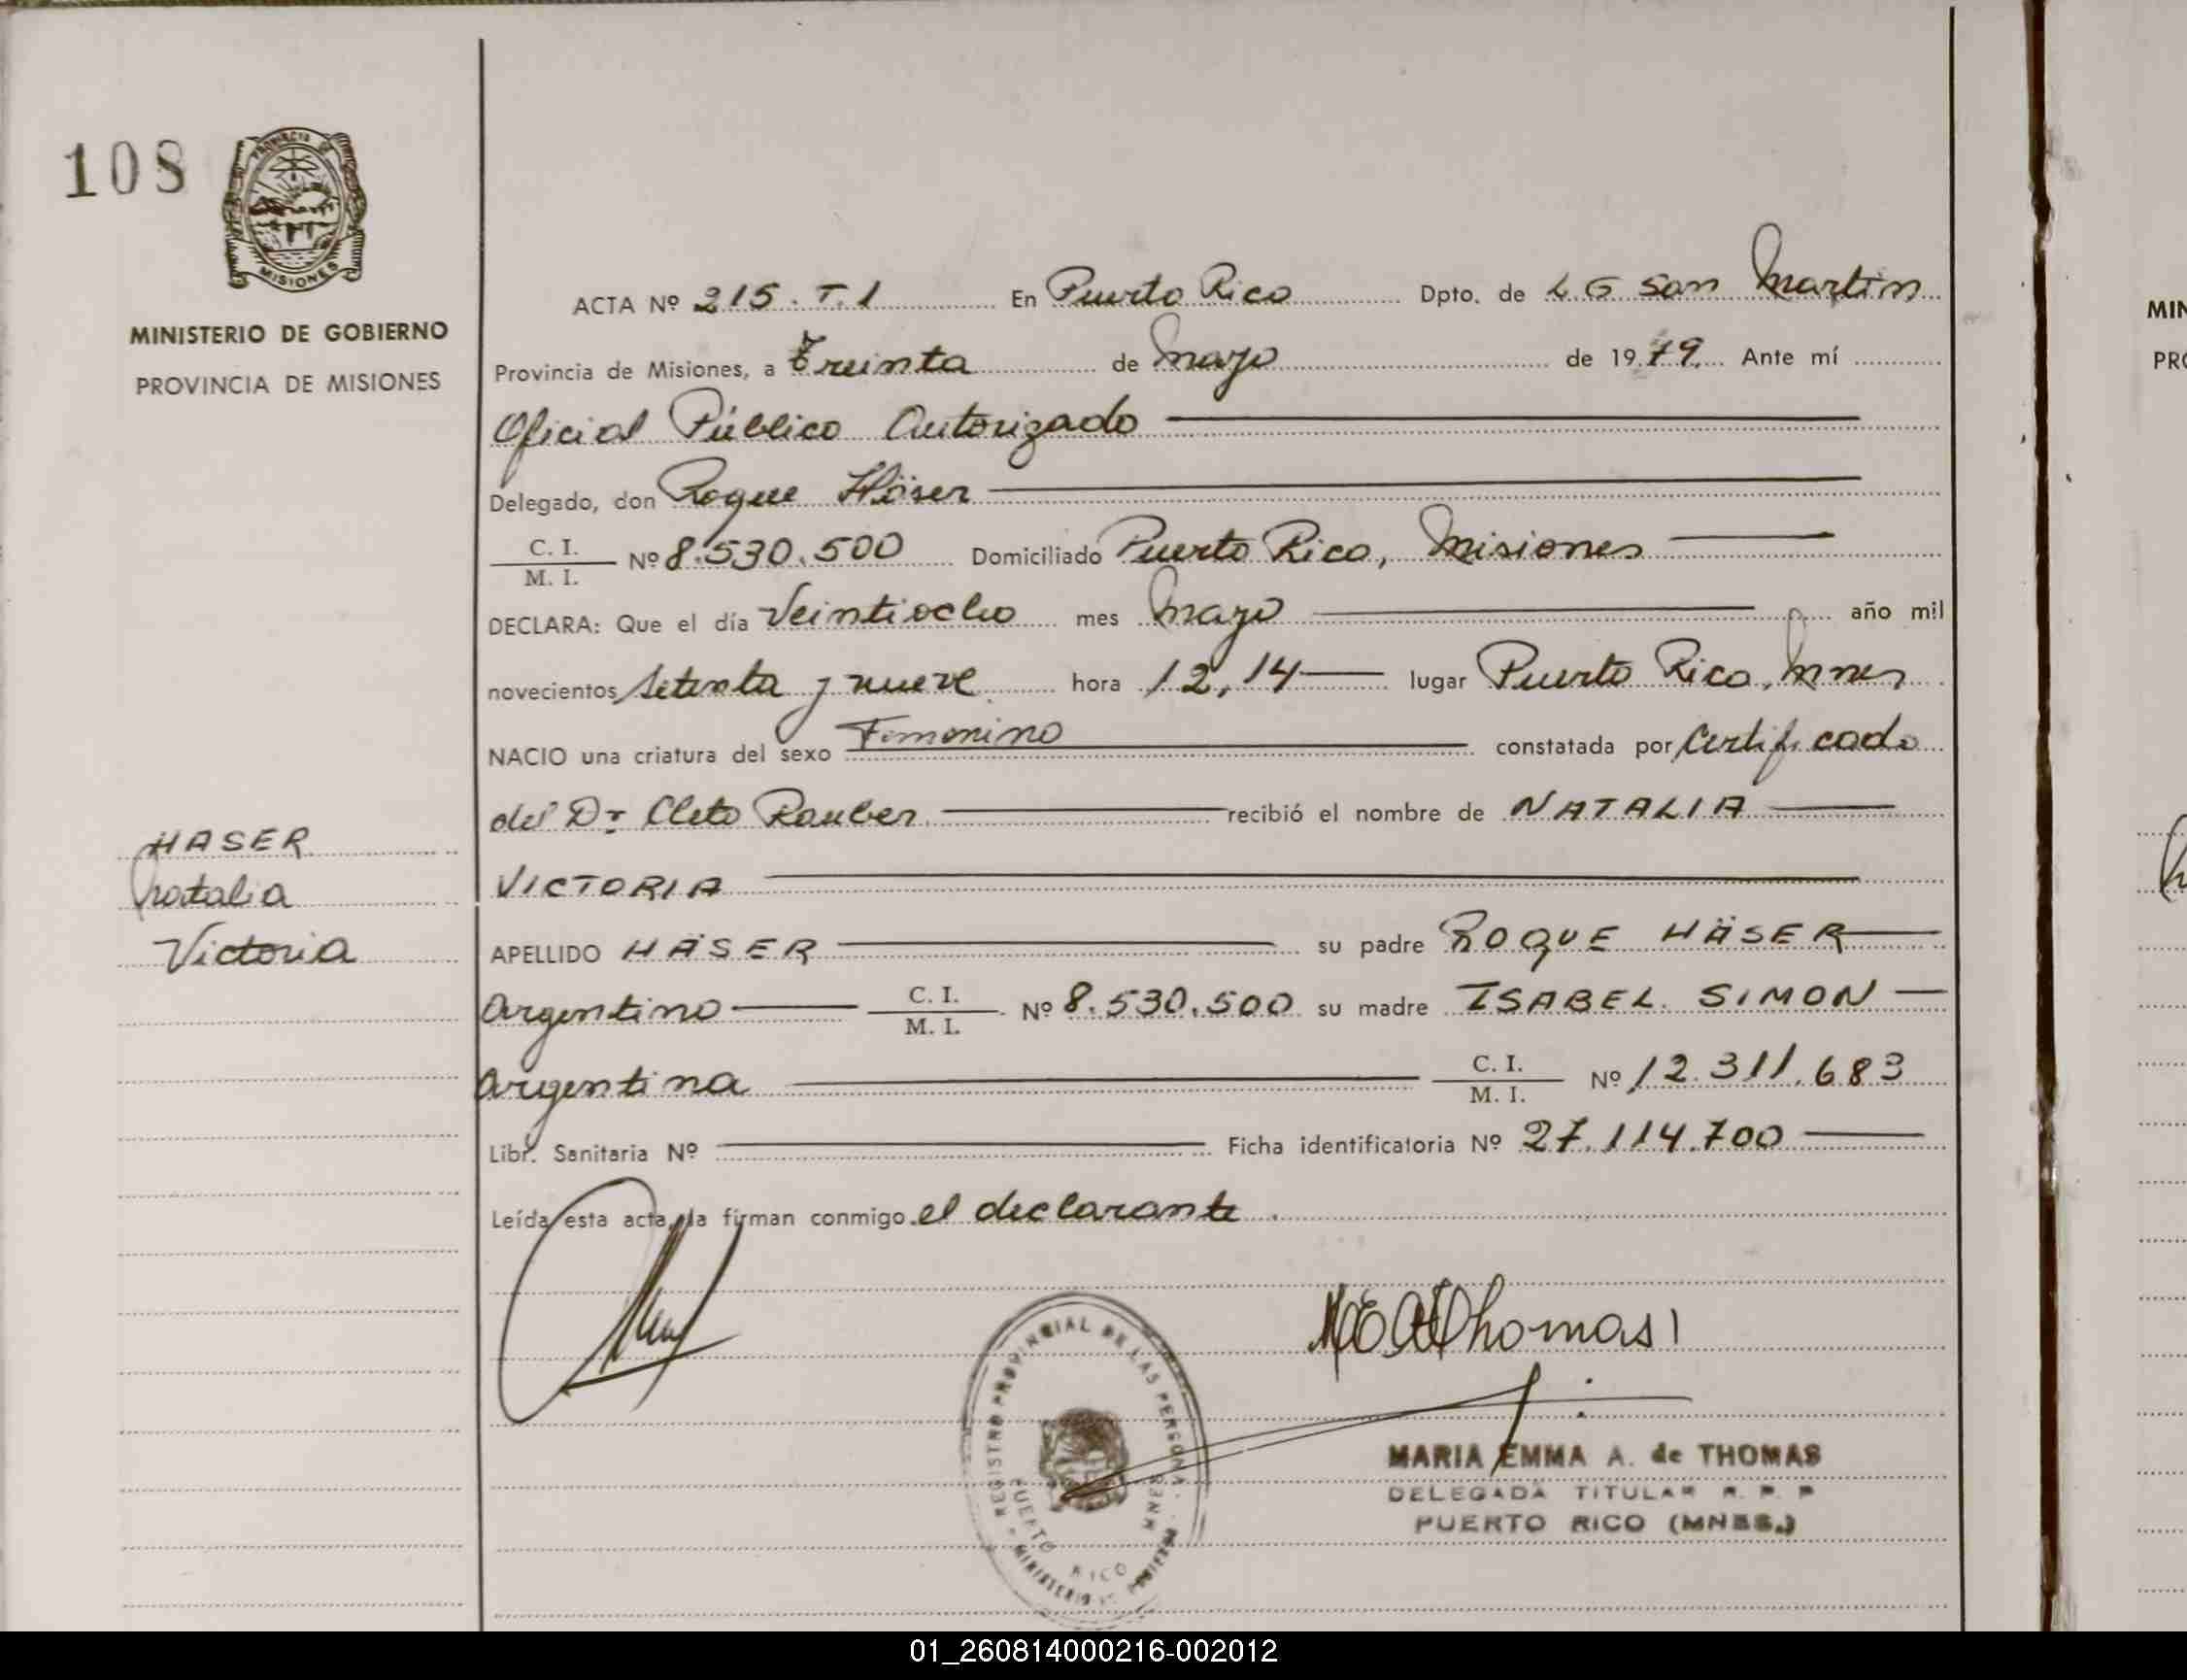 108
PROVINCIA DE
MISIONES
MINISTERIO DE GOBIERNO
PROVINCIA DE MISIONES
HASER
Natalia
Victoria
ACTA Nº 215. T. 1 En Puerto Rico Dpto. de L. G San Martin
Provincia de Misiones, a Treinta de Mayo de 1979. Ante mí
Oficial Público Autorizado
Delegado, don Roque Häser
C. I.
M. I. Nº 8.530.500 Domiciliado Puerto Rico, Misiones
DECLARA: Que el día Veintiocho mes Mayo año mil
novecientos setenta y nueve hora 12,14 lugar Puerto Rico, Mnes
NACIO una criatura del sexo Femenino constatada por Certificado
del Dr Cleto Rauber recibió el nombre de NATALIA
VICTORIA
APELLIDO HÄSER su padre ROQUE HÄSER
Argentino C. I.
M. I. Nº 8.530.500 su madre ISABEL SIMON
Argentina C. I.
M. I. Nº 12.311.683
Libr. Sanitaria Nº Ficha identificatoria Nº 27.114.700
Leída esta acta, la firman conmigo el declarante.
Thomas
REGISTRO PROVINCIAL DE LAS PERSONAS
PUERTO RICO MNES
MINISTERIO DE GOBIERNO
MARIA EMMA A. de THOMAS
DELEGADA TITULAR R. P. P
PUERTO RICO (MNES.)
MIN
PRO
01_260814000216-002012